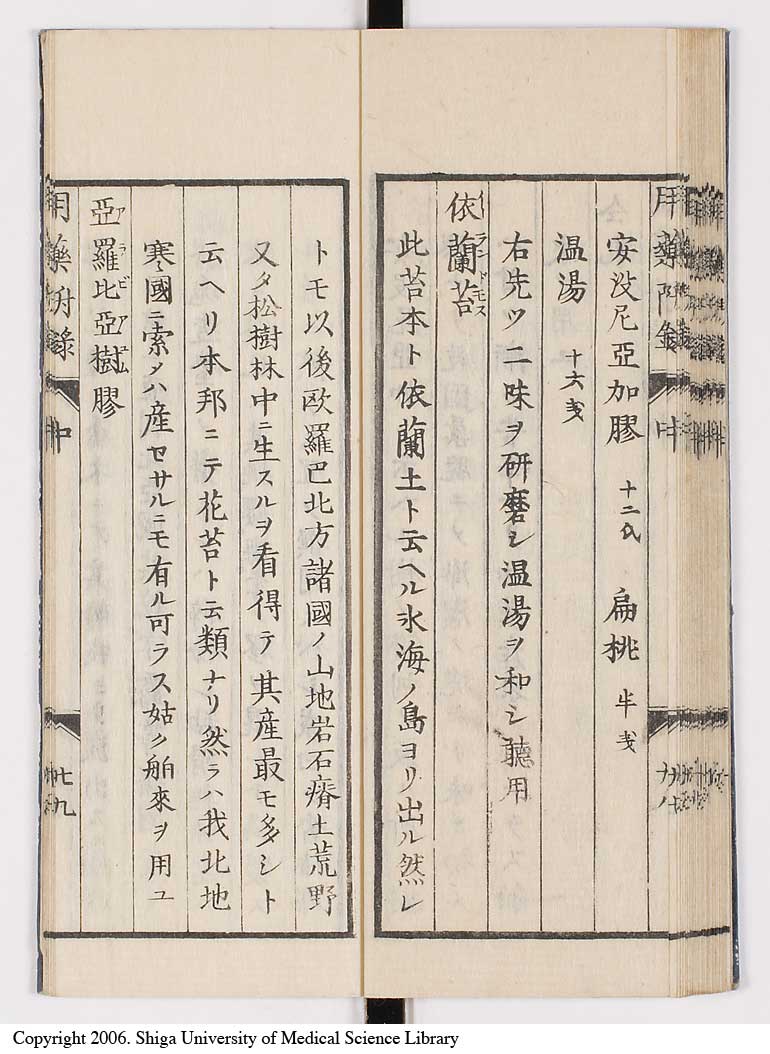 安没尼亜加膠 十二氏 扁桃 半戔
温湯 十六戔
右先ツ二味ヲ研磨シ温湯ヲ和シ聴用
依蘭苔 イーランドモス
此苔本ト依蘭土ト云ヘル氷海ノ島ヨリ出ル然レ
トモ以後欧羅巴北方諸國ノ山地岩石瘠土荒野
又タ松樹林中ニ生スルヲ看得テ其産最モ多シト
云ヘリ本邦ニテ花苔ト云類ナリ然ラハ我北地
寒國ニ索メハ産セサルニモ有ル可ラス姑ク舶來ヲ用ユ
亞羅比亞樹膠 アラビアゴム
用藥明録 中 廿九
Copyright 2006. Shiga University of Medical Science Library